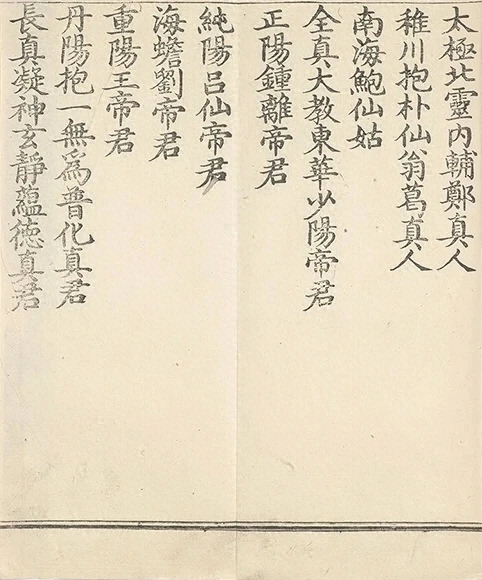 太極北靈內輔鄭真人
稚川抱朴仙翁葛真人
南海鮑仙姑
全真大教東華少陽帝君
正陽鍾離帝君
純陽呂仙帝君
海蟾劉帝君
重陽王帝君
丹陽抱一無為普化真君
長真凝神玄靜蘊德真君